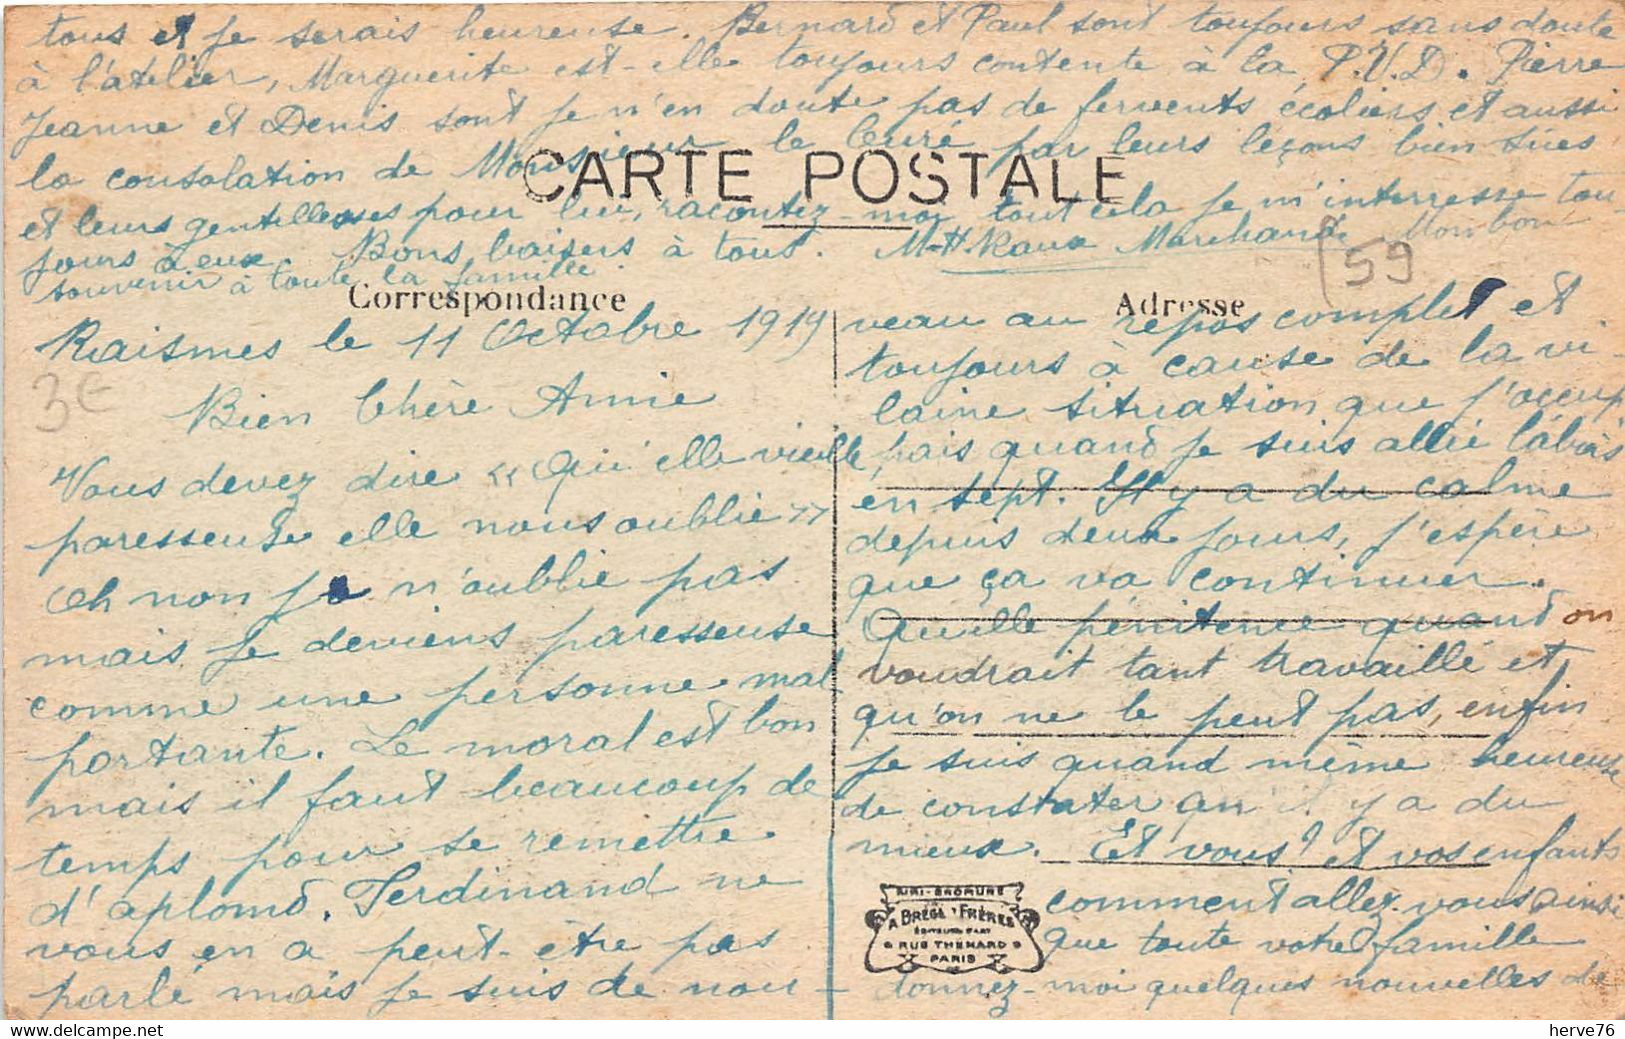 tous et je serais heureuse. Bernard et Paul sont toujours sans doute
à l'atelier, Marguerite est-elle toujours contente à la P.V.D. Pierre
Jeanne et Denis sont je n'en doute pas de fervents écoliers et aussi
la consolation de Monsieur le Curé par leurs leçons bien sues
et leurs gentillesses pour lui, racontez-moi tout cela je m'interresse tou-
jours à eux. Bons baisers à tous. M-H Roux Marchand Mon bon
souvenir à toute la famille.
CARTE POSTALE
(59
Correspondance
Adresse
3€
Raismes le 11 Octobre 1919
Bien Chère Amie
Vous devez dire « Qu'elle vieille
paresseuse elle nous oublie »
Oh non je n'oublie pas
mais je deviens paresseuse
comme une personne mal
portante. Le moral est bon
mais il faut beaucoup de
temps pour se remettre
d'aplomb. Ferdinand ne
vous en a peut-être pas
parlé mais je suis de nou-
veau au repos complet et
toujours à cause de la vi-
laine situation que j'occup
pais quand je suis allée là bas
en sept. Il y a du calme
depuis deux jours, j'espère
que ça va continuer.
Quelle pénitence quand on
voudrait tant travaillé et
qu'on ne le peut pas, enfin
je suis quand même heureuse
de constater qu'il y a du
mieux. Et vous? et vos enfants
comment allez-vous ainsi
que toute votre famille
donnez-moi quelques nouvelles de
A BREGER FRÈRES
RUE THENARD 9
PARIS
herve76